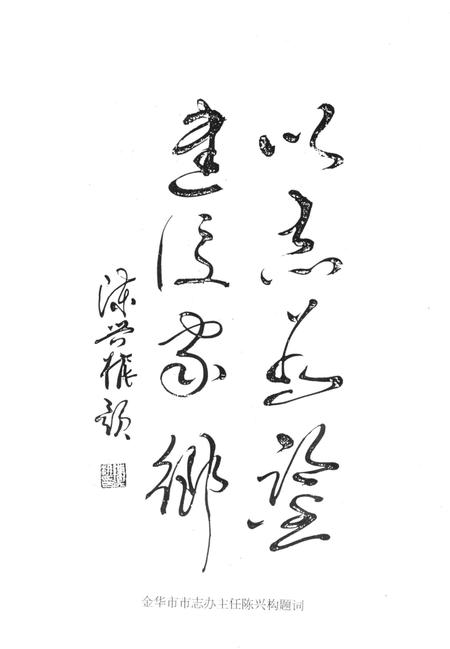 以志为鉴
建设家乡
陈兴构题
金华市市志办主任陈兴构题词